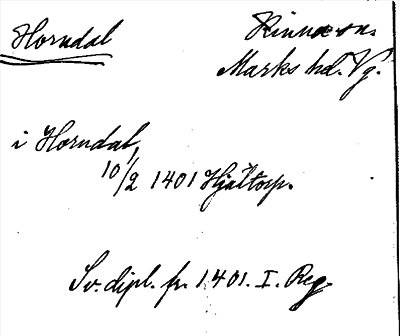 Horndal
Kinna sn.
Marks hd. Vg.
i Horndal,
10/2 1401 Hjältorp.
Sv. dipl. fr. 1401. I. Reg.